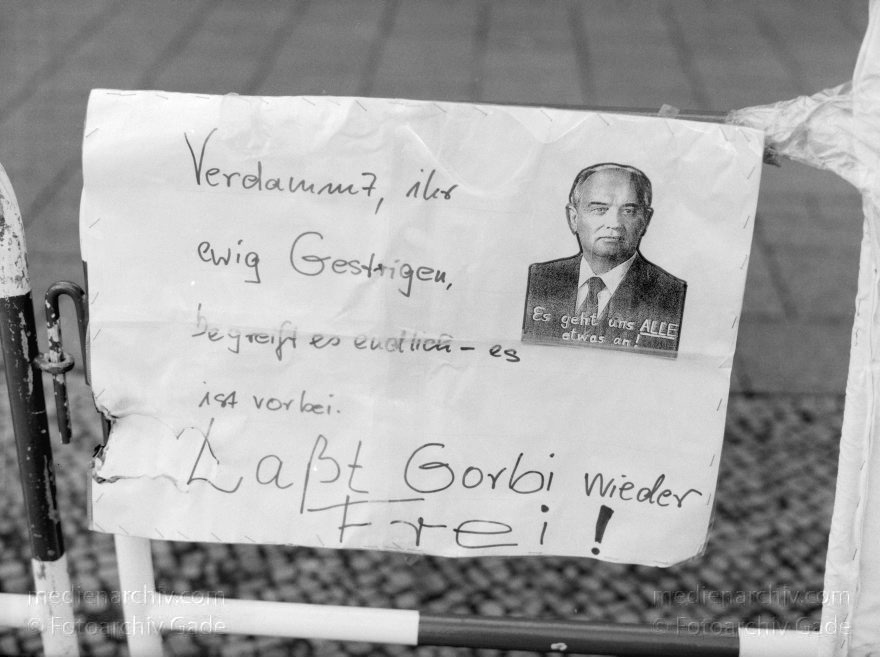 Verdammt, ihr
ewig Gestrigen,
begreift es endlich – es
ist vorbei.
Laßt Gorbi wieder
Frei!
Es geht uns ALLE
etwas an!
medienarchiv.com
© Fotoarchiv Gade
medienarchiv.com
© Fotoarchiv Gade